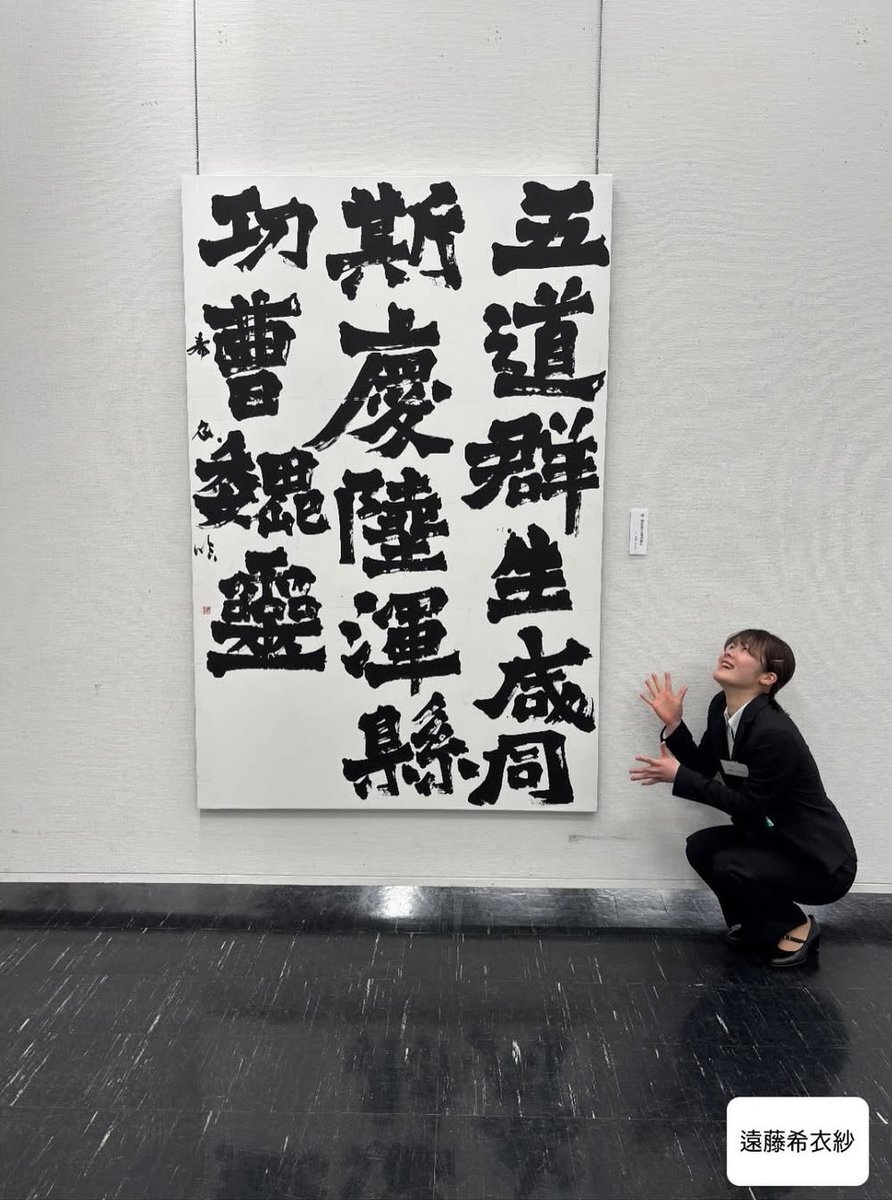 五道群生咸同
斯慶陸渾縣
功曹魏靈
希衣紗
遠藤希衣紗